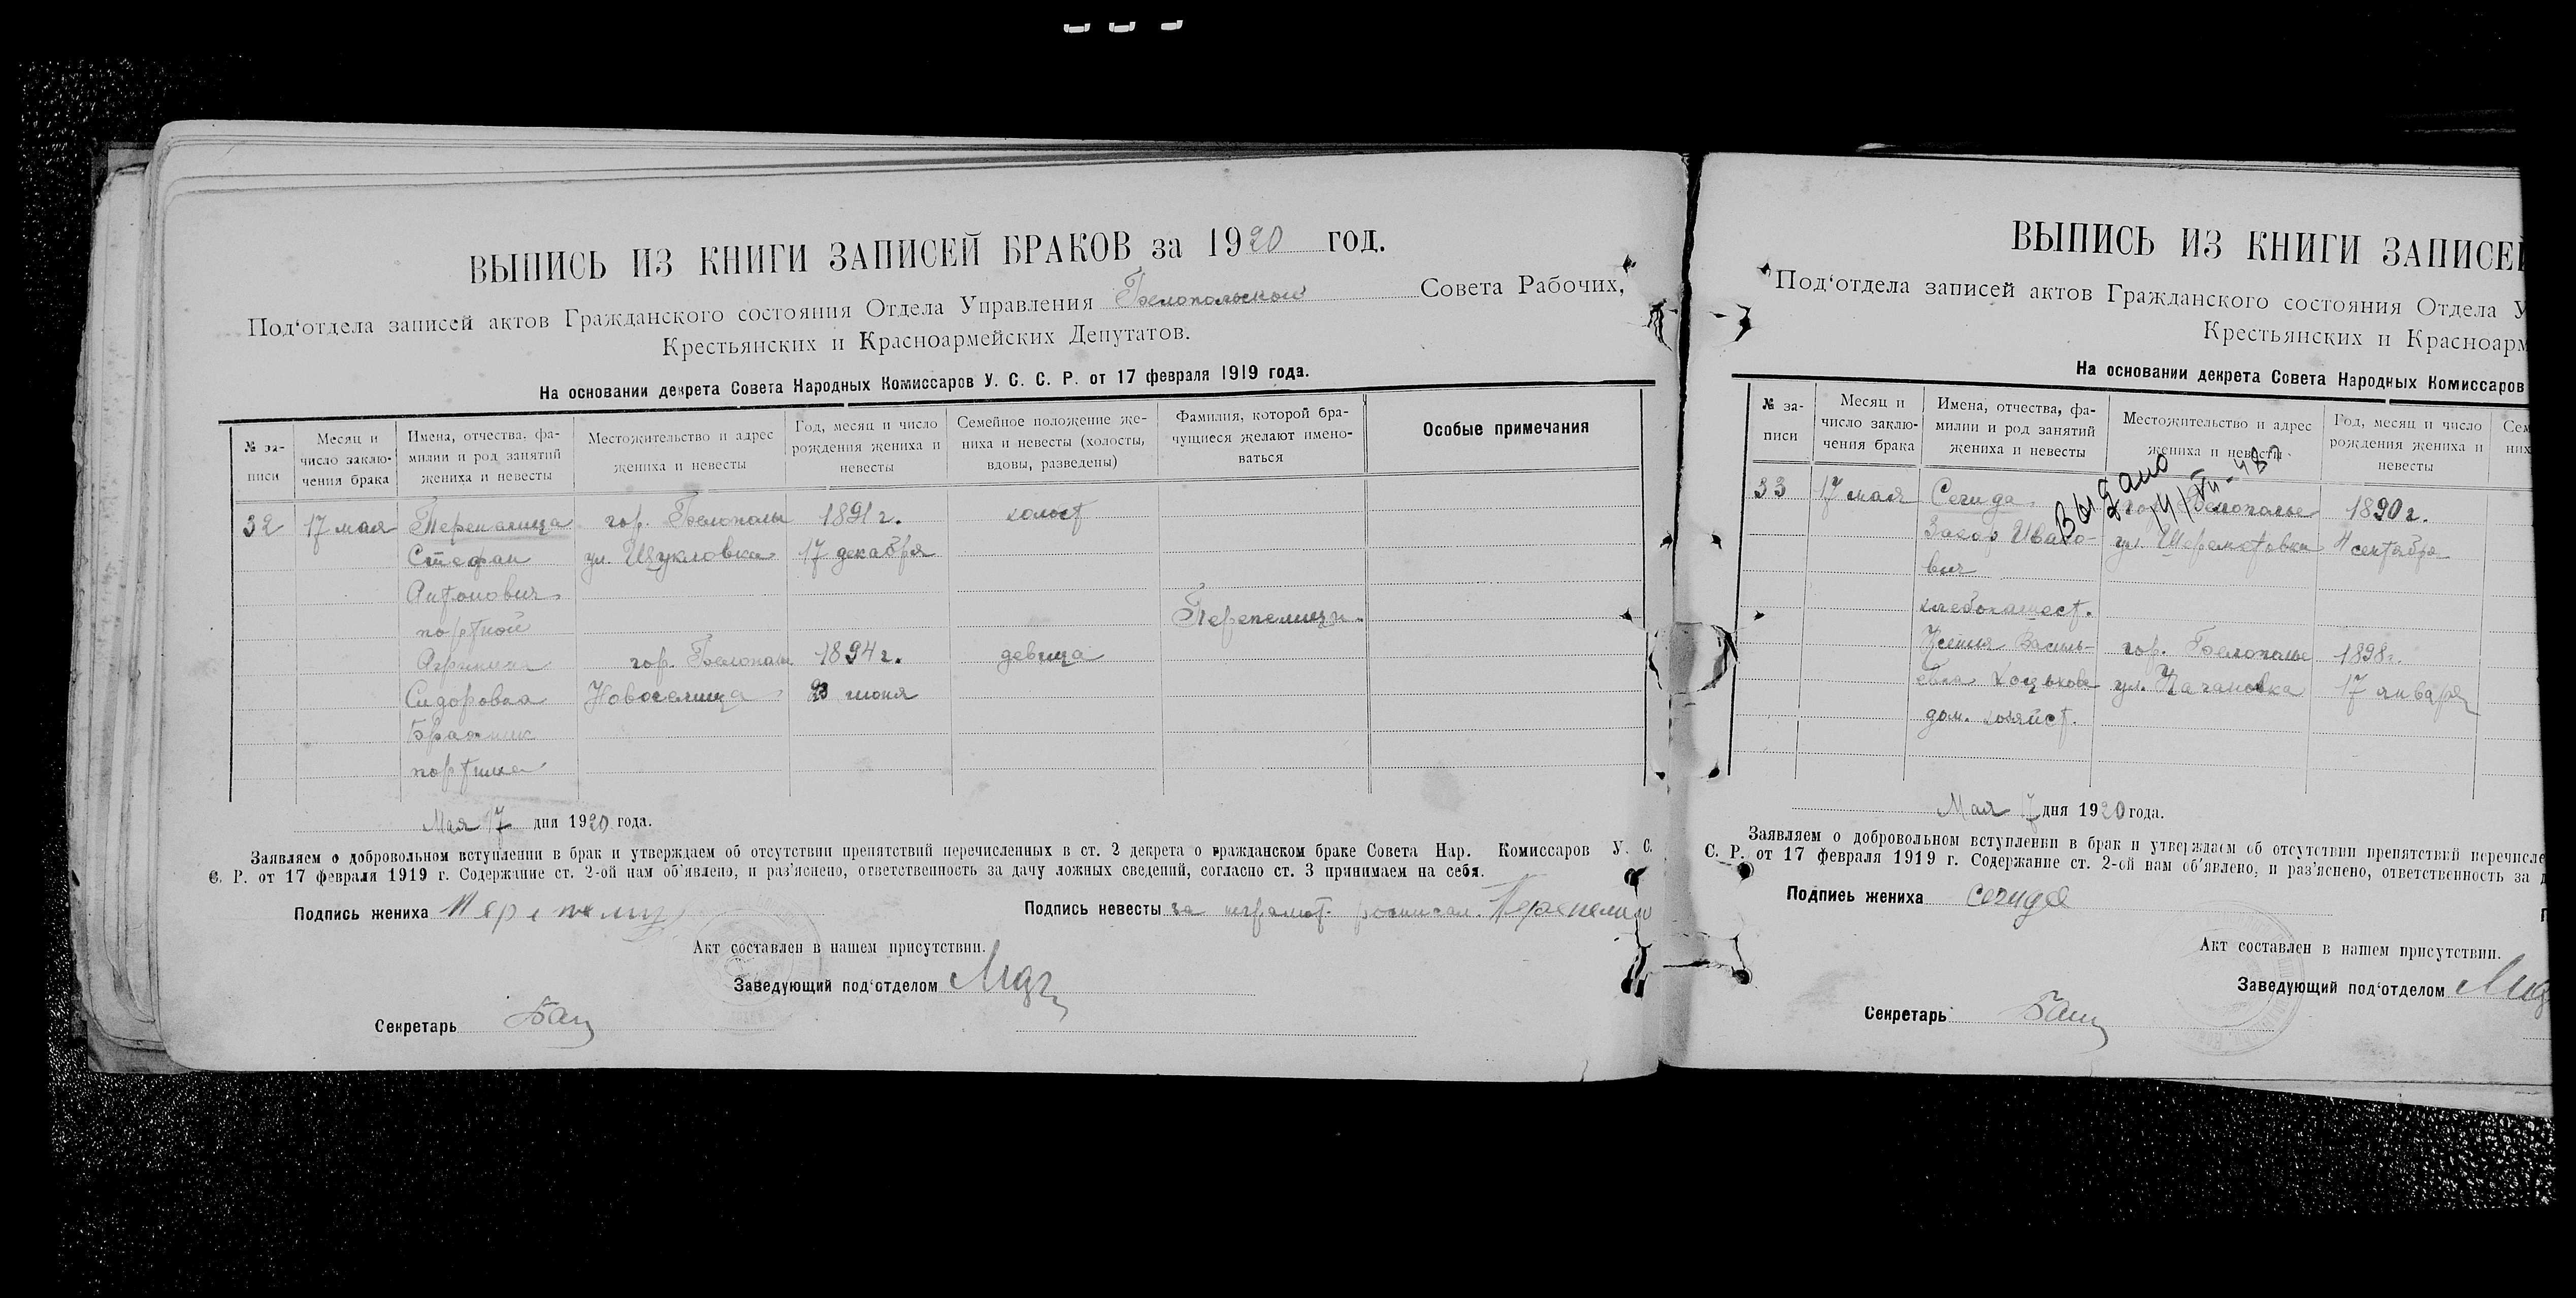 ВЫПИСЬ ИЗ КНИГИ ЗАПИСЕЙ БРАКОВ за 1920 год.
Под‘отдела записей актов Гражданского состояния Отдела Управления Белопольского Совета Рабочих,
Крестьянских и Красноармейских Депутатов.
На основании декрета Совета Народных Комиссаров У. С. С. Р. от 17 февраля 1919 года.
№ за-писи
Месяц и число заклю-чения брака
Имена, отчества, фа-милии и род занятий жениха и невесты
Местожительство и адрес жениха и невесты
Год, месяц и число рождения жениха и невесты
Семейное положение же-ниха и невесты (холосты, вдовы, разведены)
Фамилия, которой бра-чущиеся желают имено-ваться
Особые примечания
32 17 мая Перепелица гор. Белополье 1891 г. холост
Стефан ул. Щукловка 17 декабря
Антонович
портной Перепелицы.
Агрипина гор. Белополье 1894 г. девица
Сидоровна Новоселица 23 июня
Бражник
портниха
Мая 17 дня 1920 года.
Заявляем о добровольном вступлении в брак и утверждаем об отсутствии препятствий перечисленных в ст. 2 декрета о гражданском браке Совета Нар. Комиссаров У. С.
С. Р. от 17 февраля 1919 г. Содержание ст. 2-ой нам об‘явлено, и раз‘яснено, ответственность за дачу ложных сведений, согласно ст. 3 принимаем на себя.
Подпись жениха Перепелиц Подпись невесты за неграмот. росписал. Перепелиц
Акт составлен в нашем присутствии.
Заведующий под‘отделом
Секретарь
ВЫПИСЬ ИЗ КНИГИ ЗАПИСЕЙ
Под‘отдела записей актов Гражданского состояния Отдела У
Крестьянских и Красноарм
На основании декрета Совета Народных Комиссаров
№ за-писи
Месяц и число заклю-чения брака
Имена, отчества, фа-милии и род занятий жениха и невесты
Местожительство и адрес жениха и невесты
Год, месяц и число рождения жениха и невесты
Сем
них
Выдано
33 17 мая Сегида гор. Белополье 1890 г.
Захар Ивано- ул. Шереметовка 4 сентября
вич
хлебопашест.
Ксения Василь- гор. Белополье 1898 г.
евна Коцькова ул. Качановка 17 января
дом. хозяйст.
Мая 17 дня 1920 года.
Заявляем о добровольном вступлении в брак и утверждаем об отсутствии препятствий перечисле
С. Р. от 17 февраля 1919 г. Содержание ст. 2-ой нам об‘явлено, и раз‘яснено, ответственность за д
Подпись жениха Сегида
Акт составлен в нашем присутствии.
Заведующий под‘отделом
Секретарь